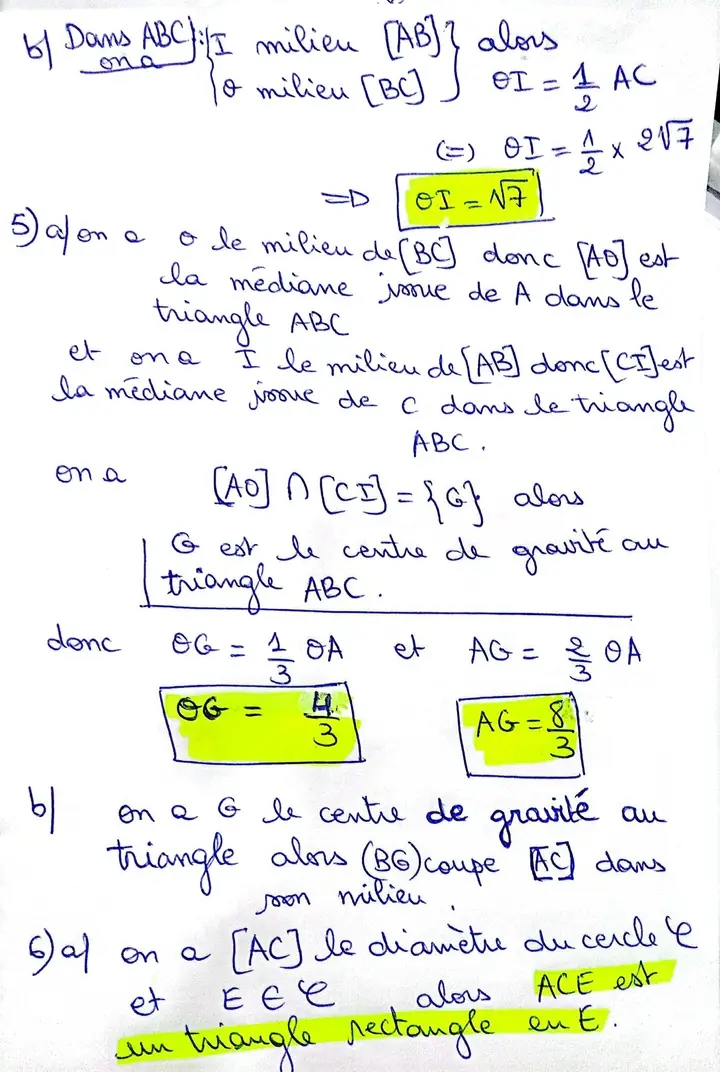 b) Dans ABC : { I milieu [AB] } alors
on a { O milieu [BC] } OI = 1/2 AC
(=) OI = 1/2 × 2√7
=> OI = √7
5) a) on a O le milieu de [BC] donc [AO] est
la médiane issue de A dans le
triangle ABC
et on a I le milieu de [AB] donc [CI] est
la médiane issue de C dans le triangle
ABC.
on a [AO] ∩ [CI] = {G} alors
G est le centre de gravité au
triangle ABC.
donc OG = 1/3 OA et AG = 2/3 OA
OG = 4/3 AG = 8/3
b) on a G le centre de gravité au
triangle alors (BG) coupe [AC] dans
son milieu.
6) a) on a [AC] le diamètre du cercle 𝒞
et E ∈ 𝒞 alors ACE est
un triangle rectangle en E.